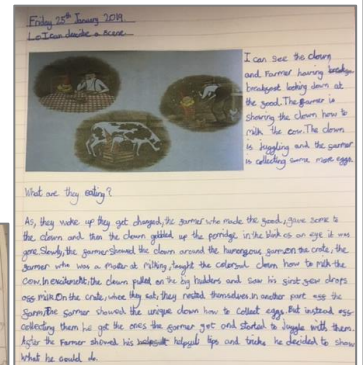 Friday 25th January 2019
L.o I can describe a scene
I can see the clown
and Farmer having
breakgast looking down at
the good. The garmer is
showing the clown how to
milk the cow. The clown
is juggling and the garmer
is collecting some more eggs.
What are they eating?
As, they woke up they got changed, the garmer who made the good, gave some to
the clown and then the clown gobbled up the porridge in the blink os an eye it was
gone. Slowly, the garmer showed the clown around the humongous garm on the crate, the
garmer who was a master at milking, taught the colorgul clown how to milk the
cow. In excitement, the clown pulled on the by hudders and saw his girst gew drops
ogg milk. On the crate, where they sat, they rested themselves in another part ogg the
garm, the garmer showed the unique clown how to collect eggs. But instead ogg
collecting them he got the ones the garmer got and started to juggle with them.
Agter the Farmer showed his helpgul tips and tricks he decided to show
what he could do.